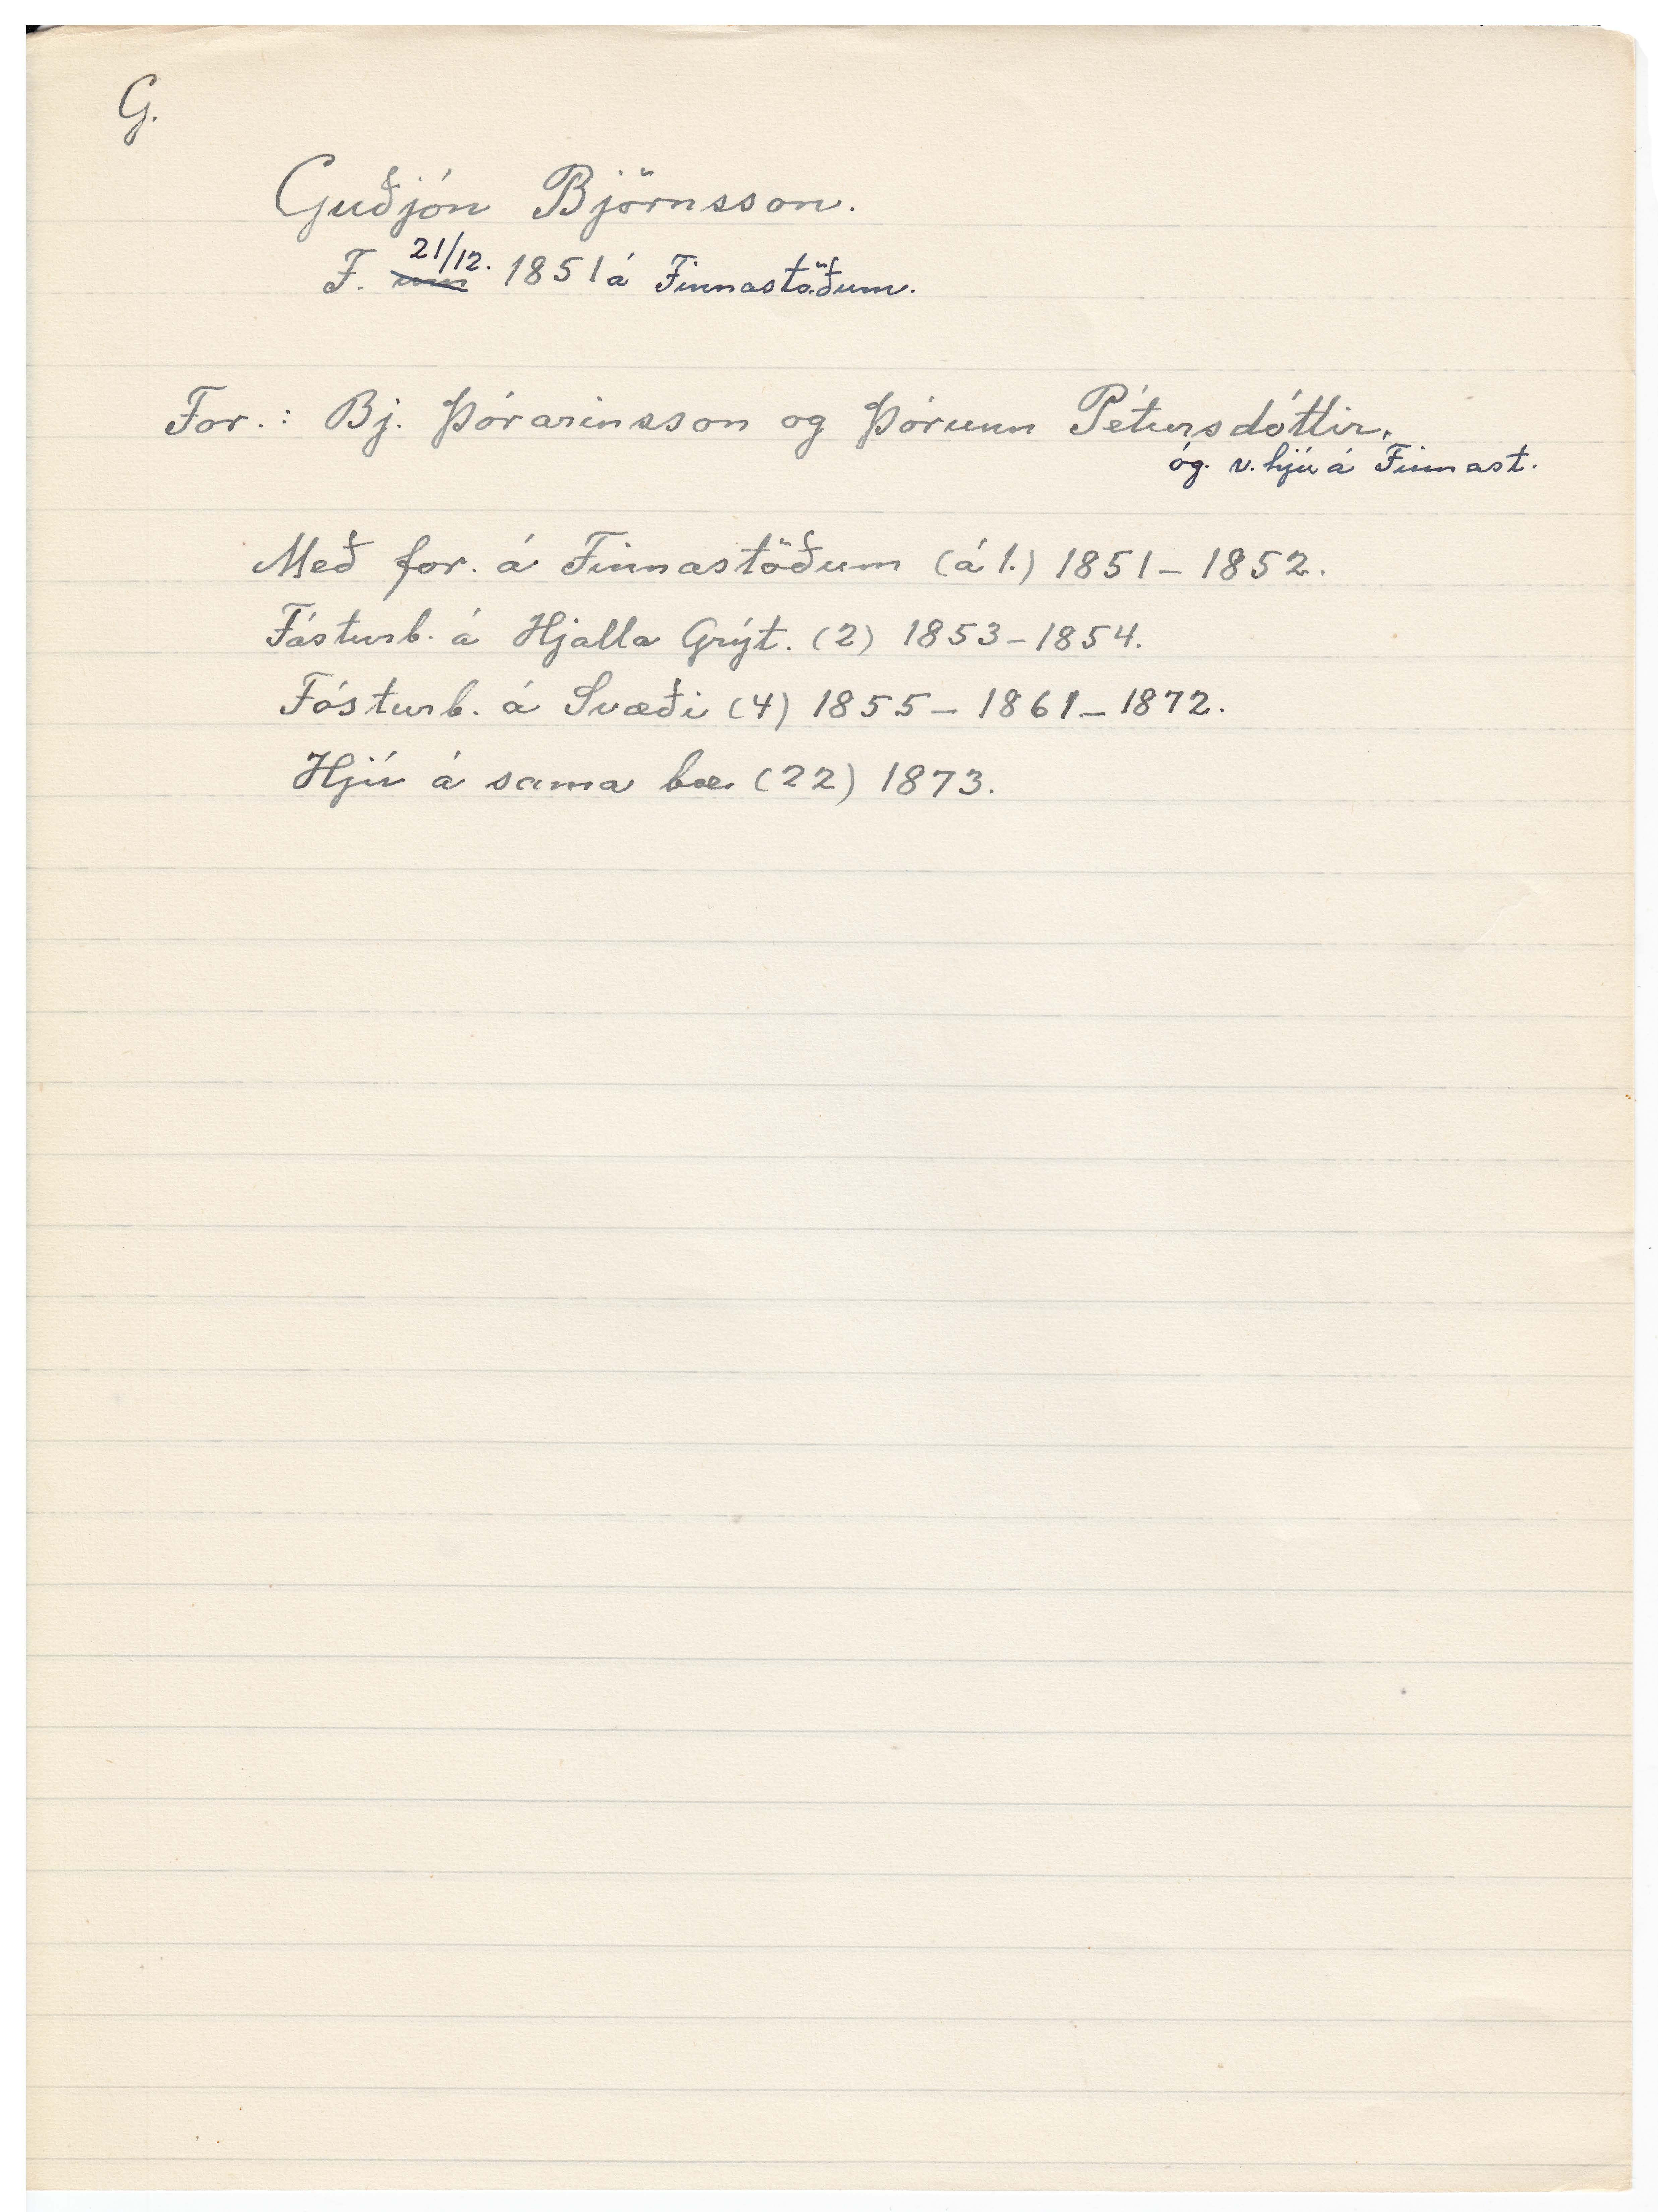 G.
Guðjón Björnsson.
F. 21/12. 1851 á Finnastöðum.
For.: Bj. Þórarinsson og Þórunn Pétursdóttir,
óg. v.hjú á Finnast.
Með for. á Finnastöðum (á 1.) 1851 - 1852.
Fósturb. á Hjalla Grýt. (2) 1853 - 1854.
Fósturb. á Svæði (4) 1855 - 1861 - 1872.
Hjú á sama bæ (22) 1873.